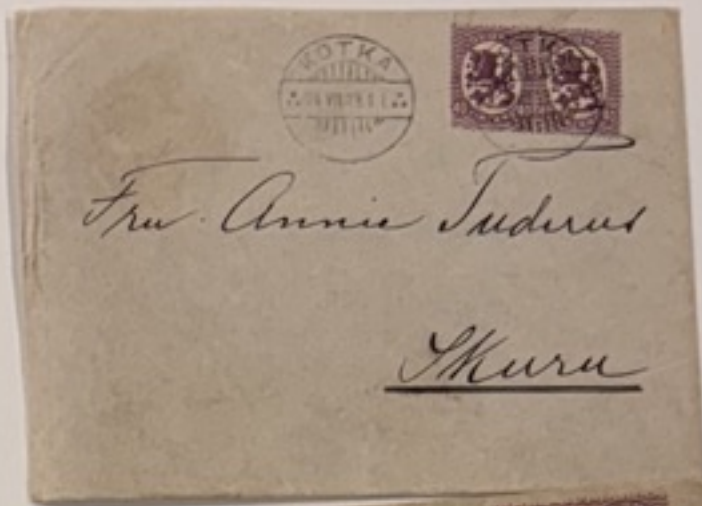 KOTKA
TKA
Fru Annie Tuderus
Skuru